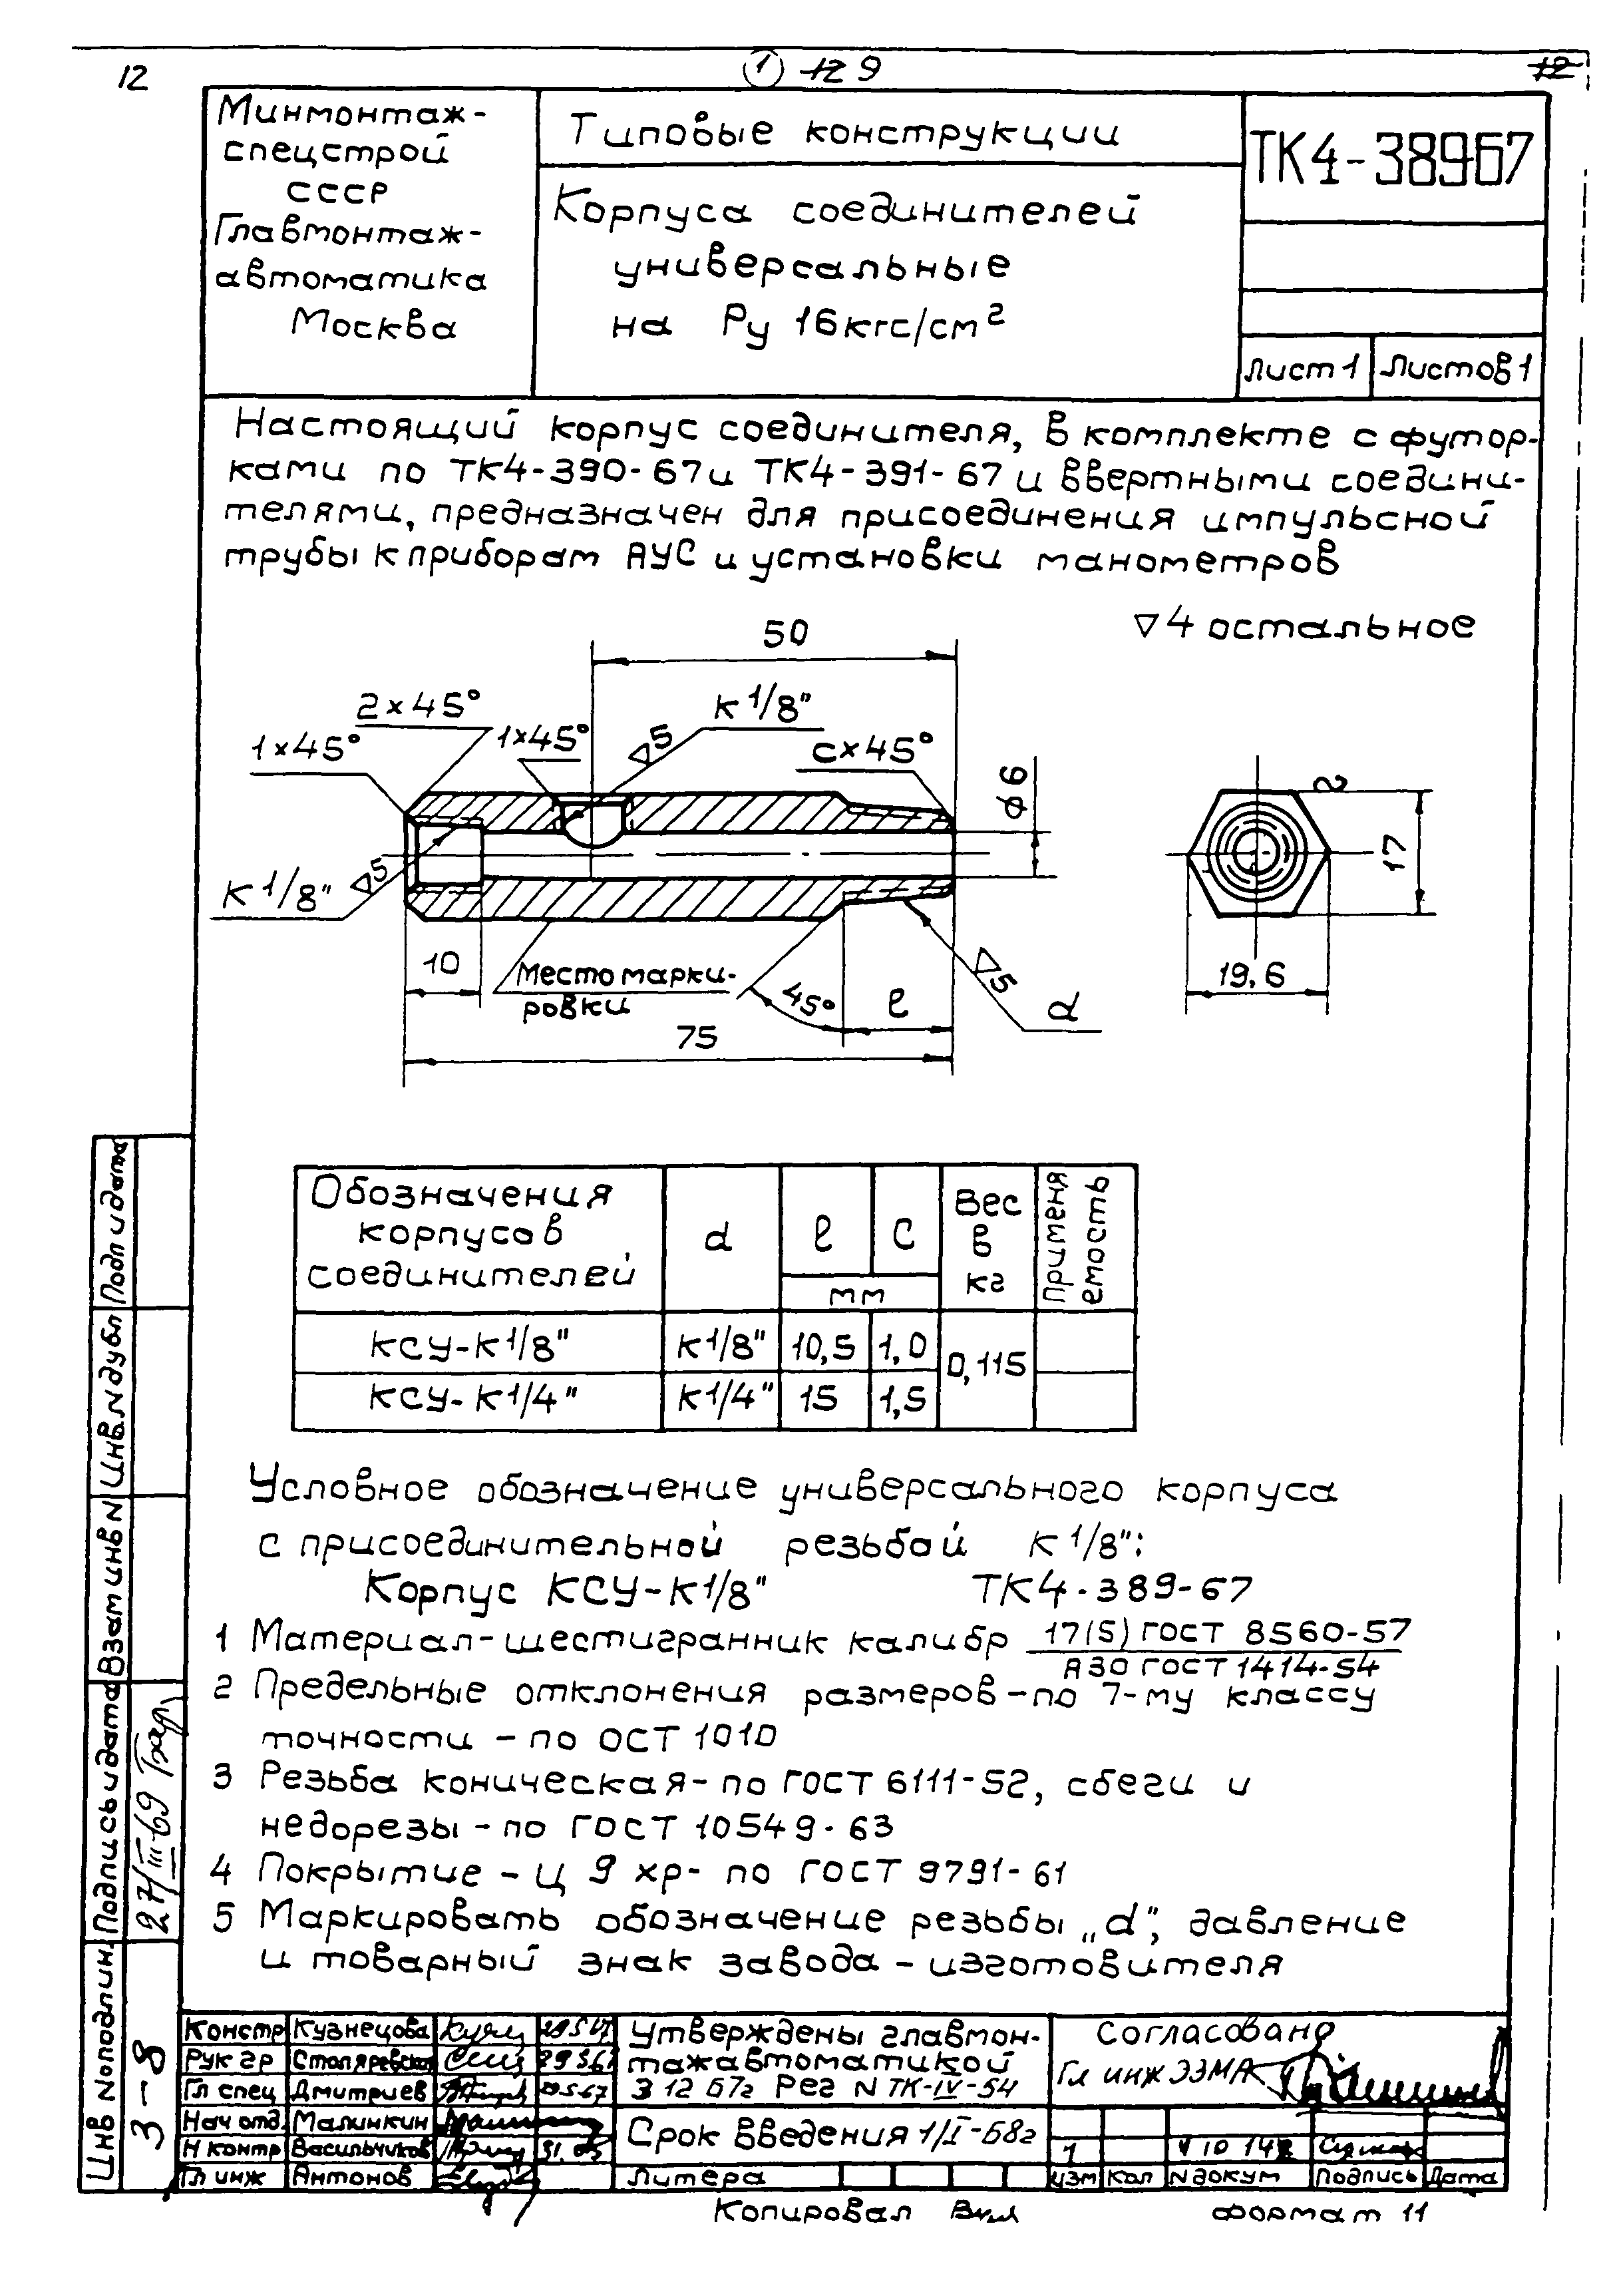 12
1 12 9
12
Минмонтаж-
спецстрой
СССР
Главмонтаж-
автоматика
Москва
Типовые конструкции
Корпуса соединителей
универсальные
на Ру 16кгс/см²
ТК4-38967
Лист 1 Листов 1
Настоящий корпус соединителя, в комплекте с футор-
ками по ТК4-390-67 и ТК4-391-67 и ввертными соедини-
телями, предназначен для присоединения импульсной
трубы к приборам АУС и установки манометров
▽4 остальное
50
2×45°
К 1/8"
1×45°
1×45°
▽5
с×45°
ϕ6
2
17
К 1/8"
▽5
10
Место марки-
ровки
45°
ℓ
▽5
d
19,6
75
Обозначения
корпусов
соединителей
d
ℓ
С
мм
Вес
в
кг
Применя
емость
КСУ-К1/8" К1/8" 10,5 1,0 0,115
КСУ-К1/4" К1/4" 15 1,5
Условное обозначение универсального корпуса
с присоединительной резьбой К 1/8":
Корпус КСУ-К1/8" ТК4-389-67
1 Материал-шестигранник калибр 17(5) ГОСТ 8560-57
А30 ГОСТ 1414-54
2 Предельные отклонения размеров-по 7-му классу
точности - по ОСТ 1010
3 Резьба коническая-по ГОСТ 6111-52, сбеги и
недорезы-по ГОСТ 10549-63
4 Покрытие - Ц 9 хр- по ГОСТ 9791-61
5 Маркировать обозначение резьбы „d", давление
и товарный знак завода-изготовителя
Подп и дата
Инв.N дубл
Взам инв N
Подпись и дата
27/III-69
Инв Nоподлин.
3-8
Констр Кузнецова
Рук гр Столяревская
Гл спец Дмитриев
Нач отд. Малинкин
Н контр Васильчиков
Гл инж Антонов
Утверждены главмон-
тажавтоматикой
3 12 67г Рег N ТК-IV-54
Срок введения 1/I-68г
Литера
Согласовано
Гл инж ЭЗМА
1
изм Кол N докум Подпись Дата
Копировал
Формат 11